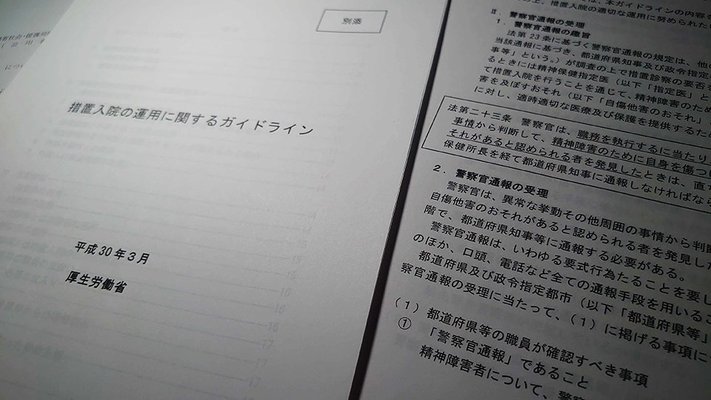 別添
措置入院の運用に関するガイドライン
平成30年3月
厚生労働省
は、本ガイドラインの内容
の上、措置入院の適切な運用に努められた
Ⅱ 警察官通報の受理
1．警察官通報の趣旨
法第23条に基づく警察官通報の規定は、他
当該通報に基づき、都道府県知事及び政令指定
事等」という。）が調査の上で措置診察の要否
るときには精神保健指定医（以下「指定医」と
て措置入院を行うことを通じて、精神障害のため
害を及ぼすおそれ（以下「自傷他害のおそれ」
に対し、適時適切な医療及び保護を提供するため
法第二十三条 警察官は、職務を執行するに当たり
事情から判断して、精神障害のために自身を傷つ
それがあると認められる者を発見したときは、直
保健所長を経て都道府県知事に通報しなければなら
2．警察官通報の受理
警察官は、異常な挙動その他周囲の事情から判断
自傷他害のおそれがあると認められる者を発見した
階で、都道府県知事等に通報する必要がある。
警察官通報は、いわゆる要式行為たることを要し
のほか、口頭、電話など全ての通報手段を用いるこ
都道府県及び政令指定都市（以下「都道府県等」
察官通報の受理に当たって、（1）に掲げる事項につ
（1）都道府県等の職員が確認すべき事項
① 「警察官通報」であること
精神障害者について、警察